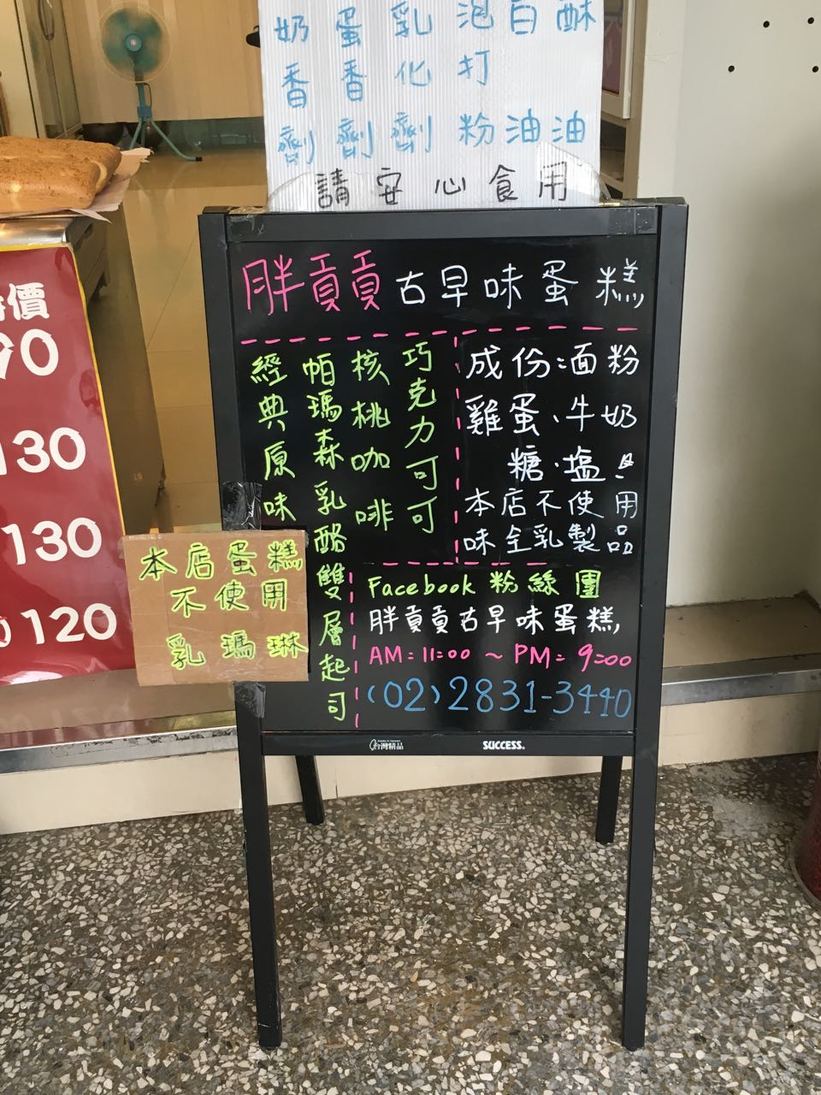 酥油
白油
泡打粉
乳化劑
蛋香劑
奶香劑
請安心食用
胖貢貢古早味蛋糕
巧克力可可
核桃咖啡
帕瑪森乳酪雙層起司
經典原味
成份:面粉
雞蛋、牛奶
糖.塩
本店不使用
味全乳製品
Facebook 粉絲團
胖貢貢古早味蛋糕
AM:11:00 ~ PM:9:00
(02)2831-3440
本店蛋糕
不使用
乳瑪琳
台灣精品
SUCCESS.
價
90
130
130
120